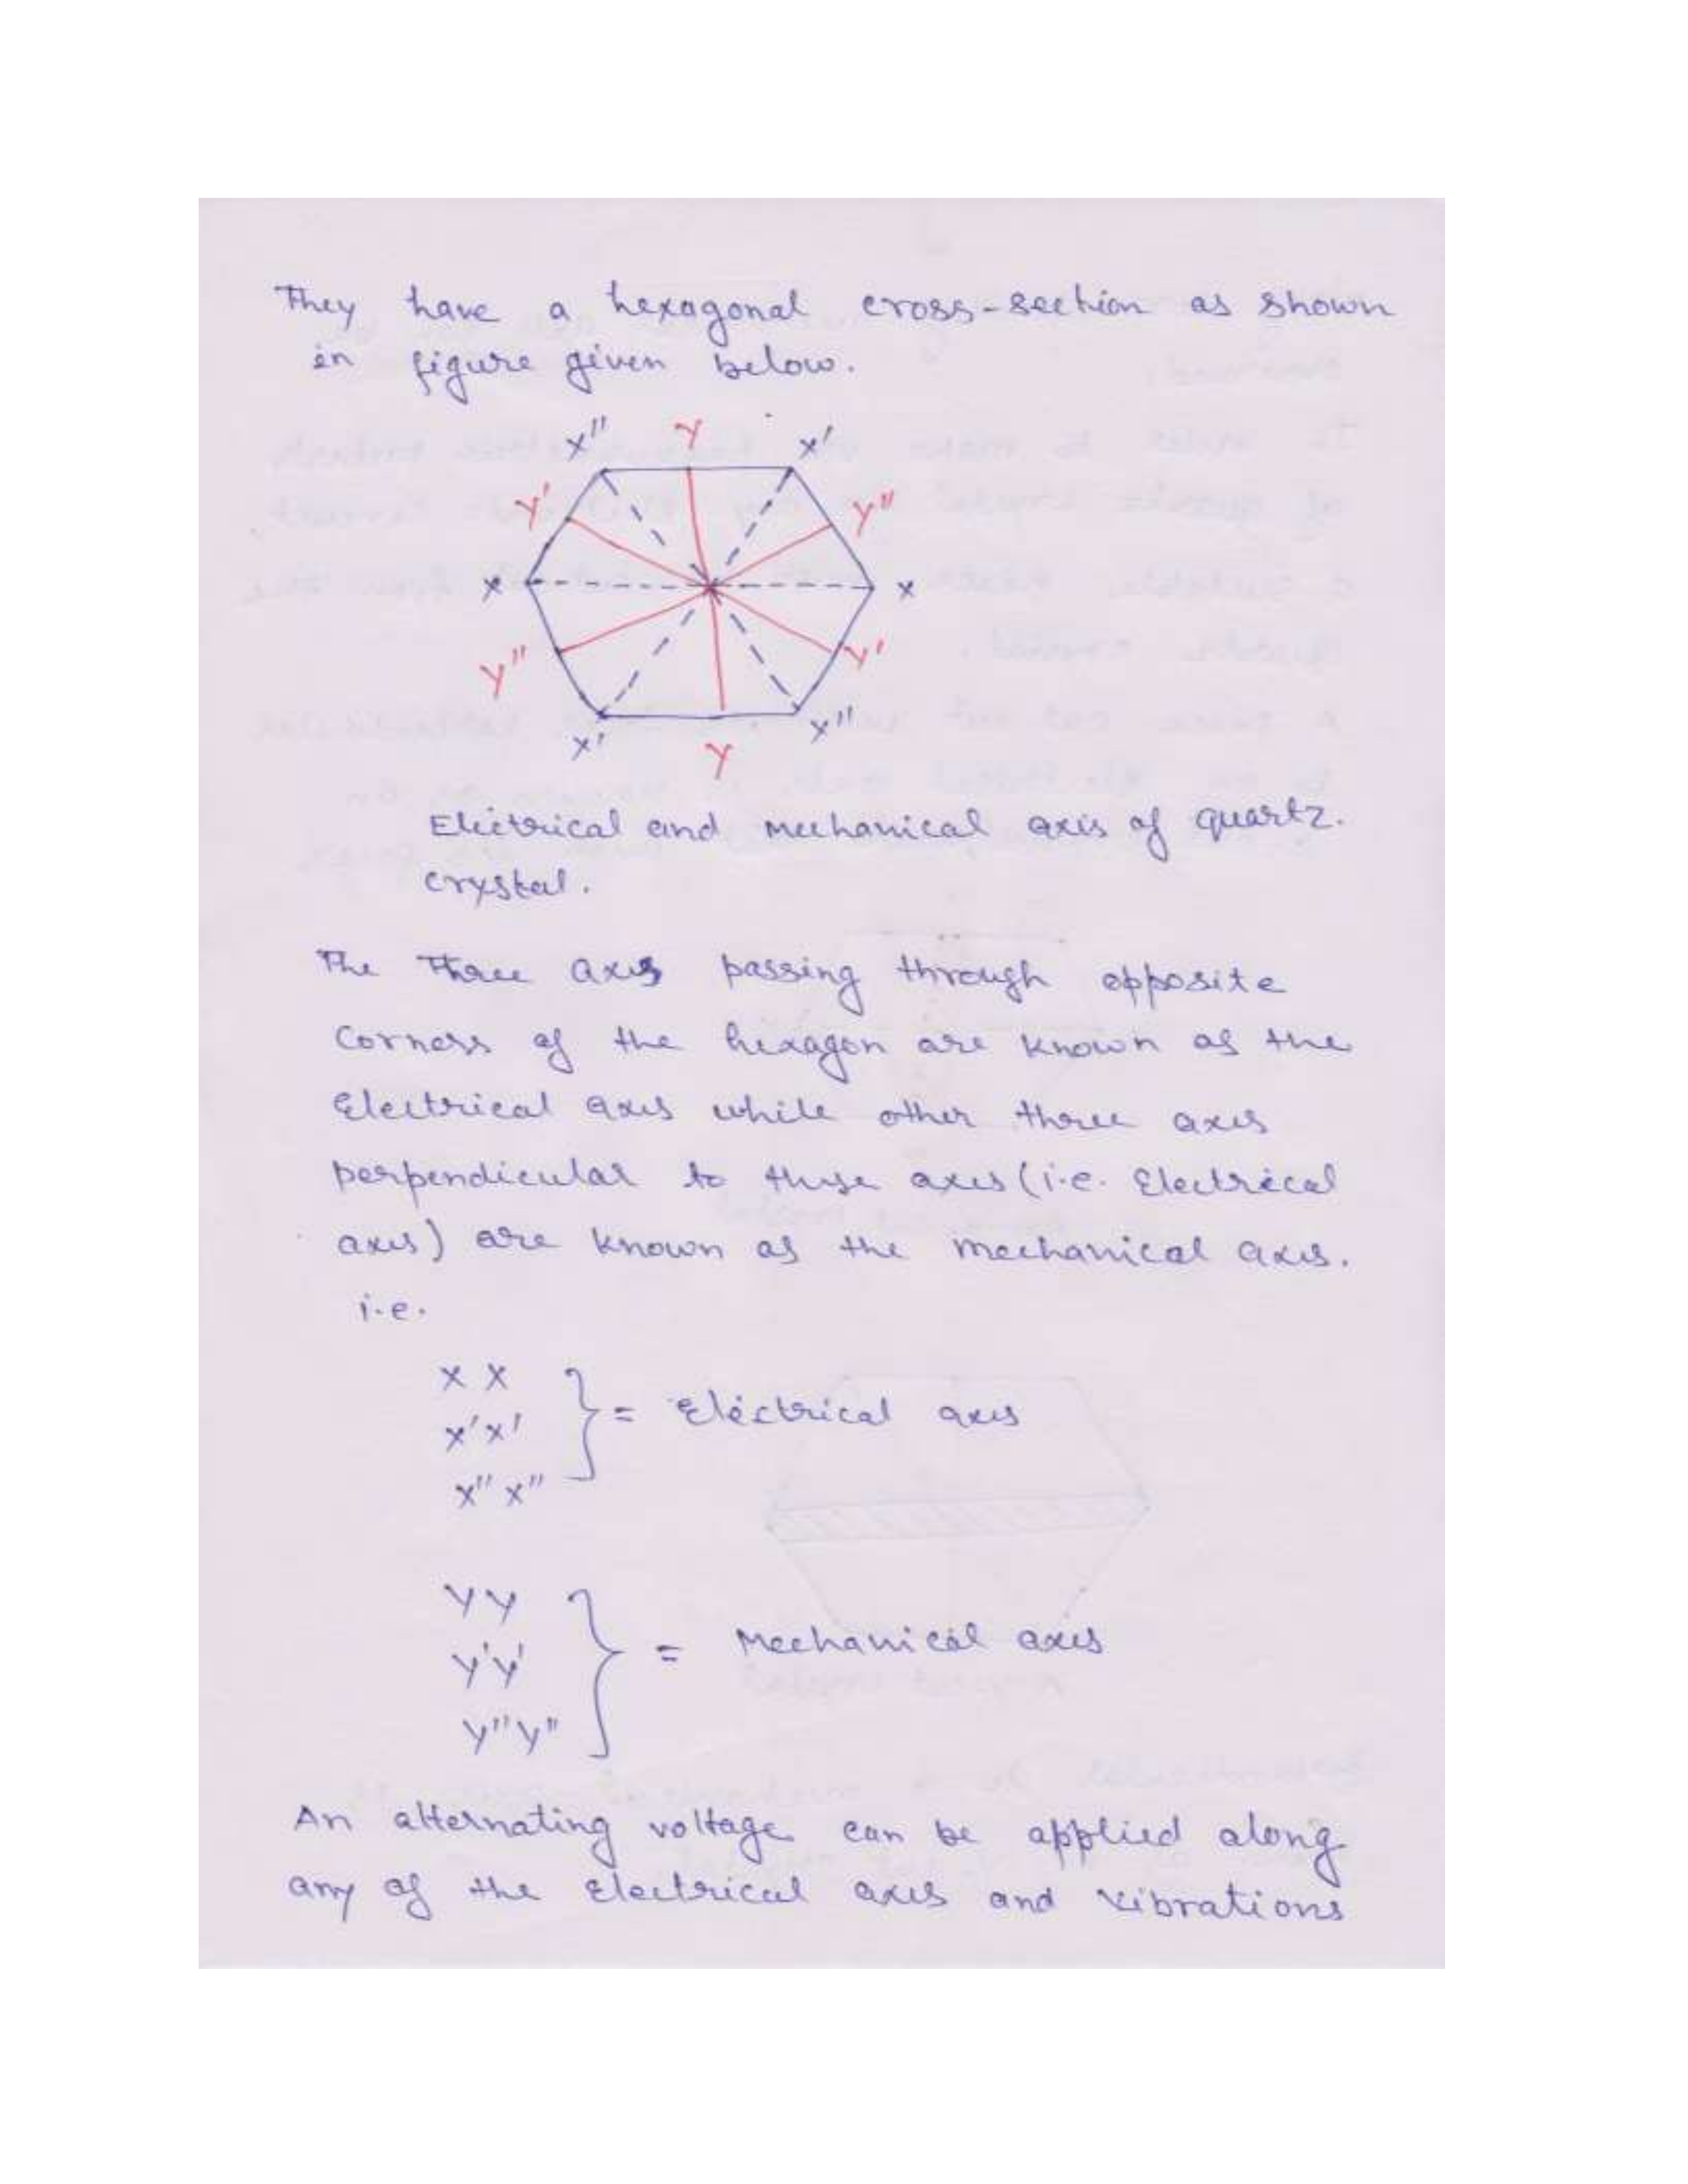 They have a hexagonal cross-section as shown
in figure given below.
x'' y x'
y' y''
x x
y'' y'
x' y x''
Electrical and mechanical axis of quartz.
crystal.
The Three axis passing through opposite
Corners of the hexagon are known as the
Electrical axis while other three axis
perpendicular to these axis (i.e. Electrical
axis) are known as the mechanical axis.
i.e.
x x
x'x' } = Electrical axis
x'' x''
y y
y'y' } = Mechanical axis
y''y''
An alternating voltage can be applied along
any of the Electrical axis and vibrations